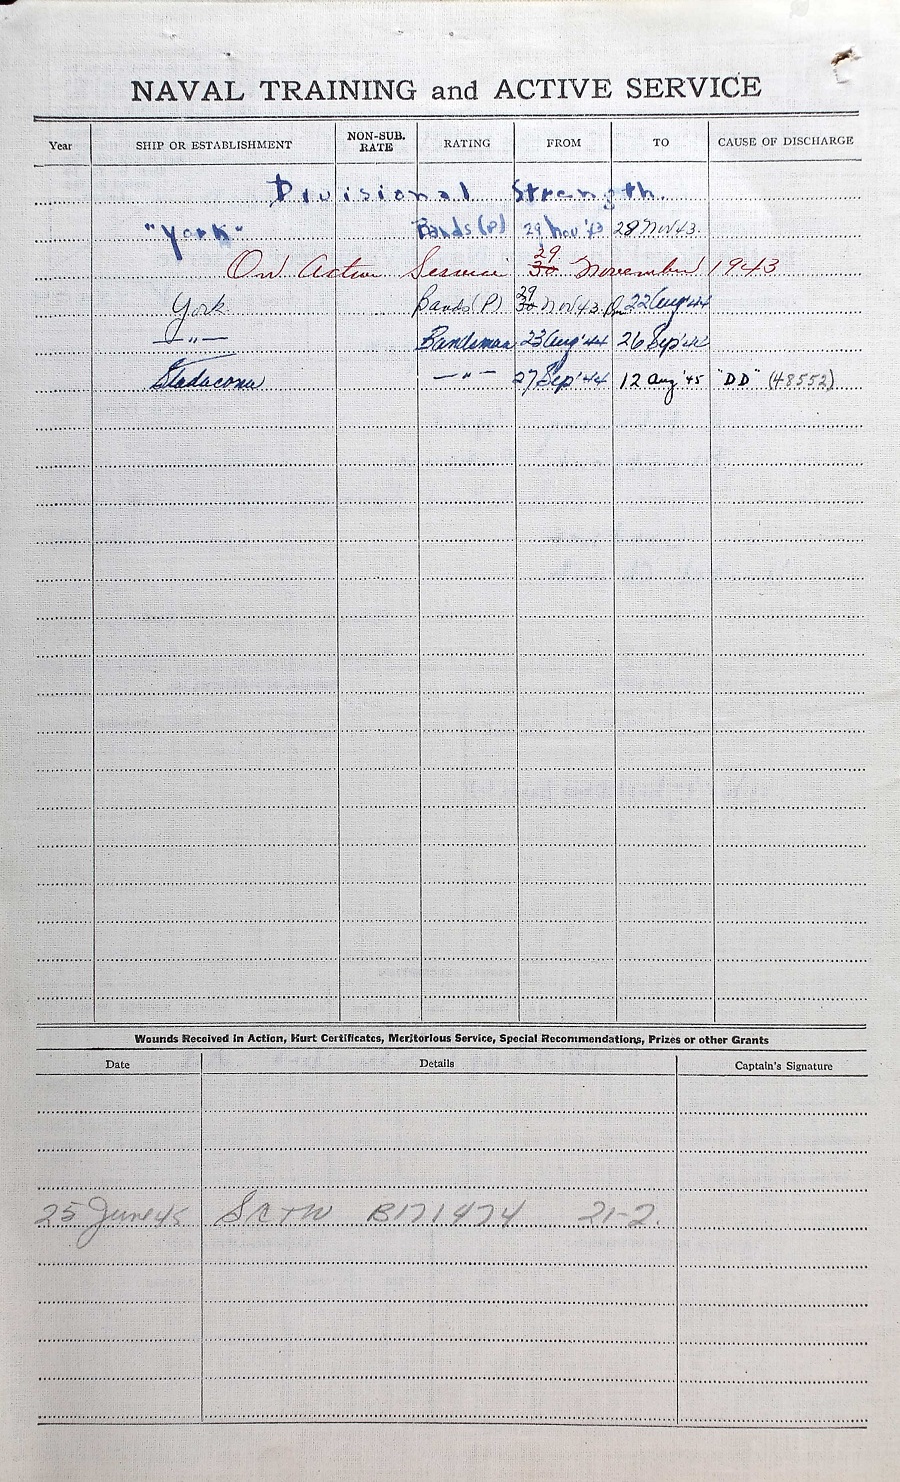 NAVAL TRAINING and ACTIVE SERVICE
Year SHIP OR ESTABLISHMENT NON-SUB. RATE RATING FROM TO CAUSE OF DISCHARGE
Divisional Strength.
"York" Bands(P) 29 Nov '43 28 Nov 43.
On Active Service 29 30 November 1943
York Bands(P) 29 30 Nov 43. 22 Aug '44
—"— Bandsman 23 Aug '44 26 Sep '44
Stadacona —"— 27 Sep '44 12 Aug '45 "DD" (48552)
Wounds Received in Action, Hurt Certificates, Meritorious Service, Special Recommendations, Prizes or other Grants
Date Details Captain's Signature
25 June 45 B171474 21-2.